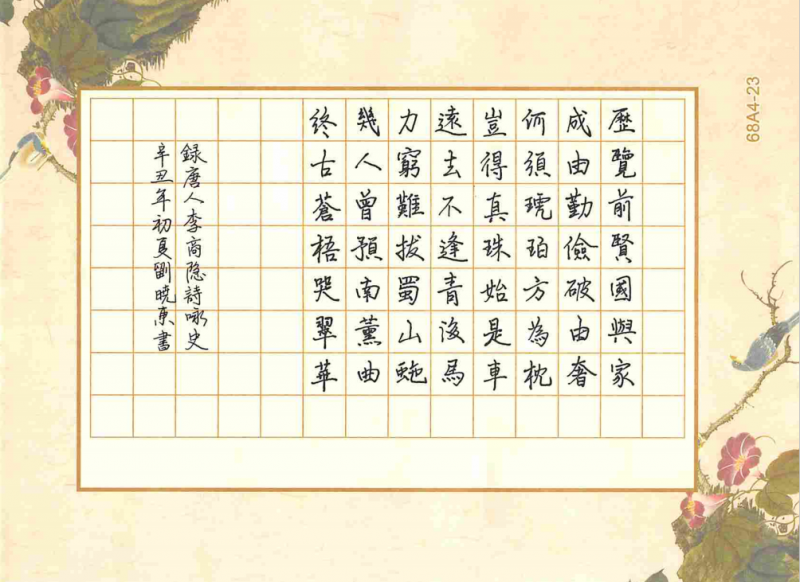 歷覽前賢國與家
成由勤儉破由奢
何須琥珀方為枕
豈得真珠始是車
遠去不逢青海馬
力窮難拔蜀山蛇
幾人曾預南薰曲
終古蒼梧哭翠華
録唐人李商隐詩咏史
辛丑年初夏劉曉東書
68A4-23